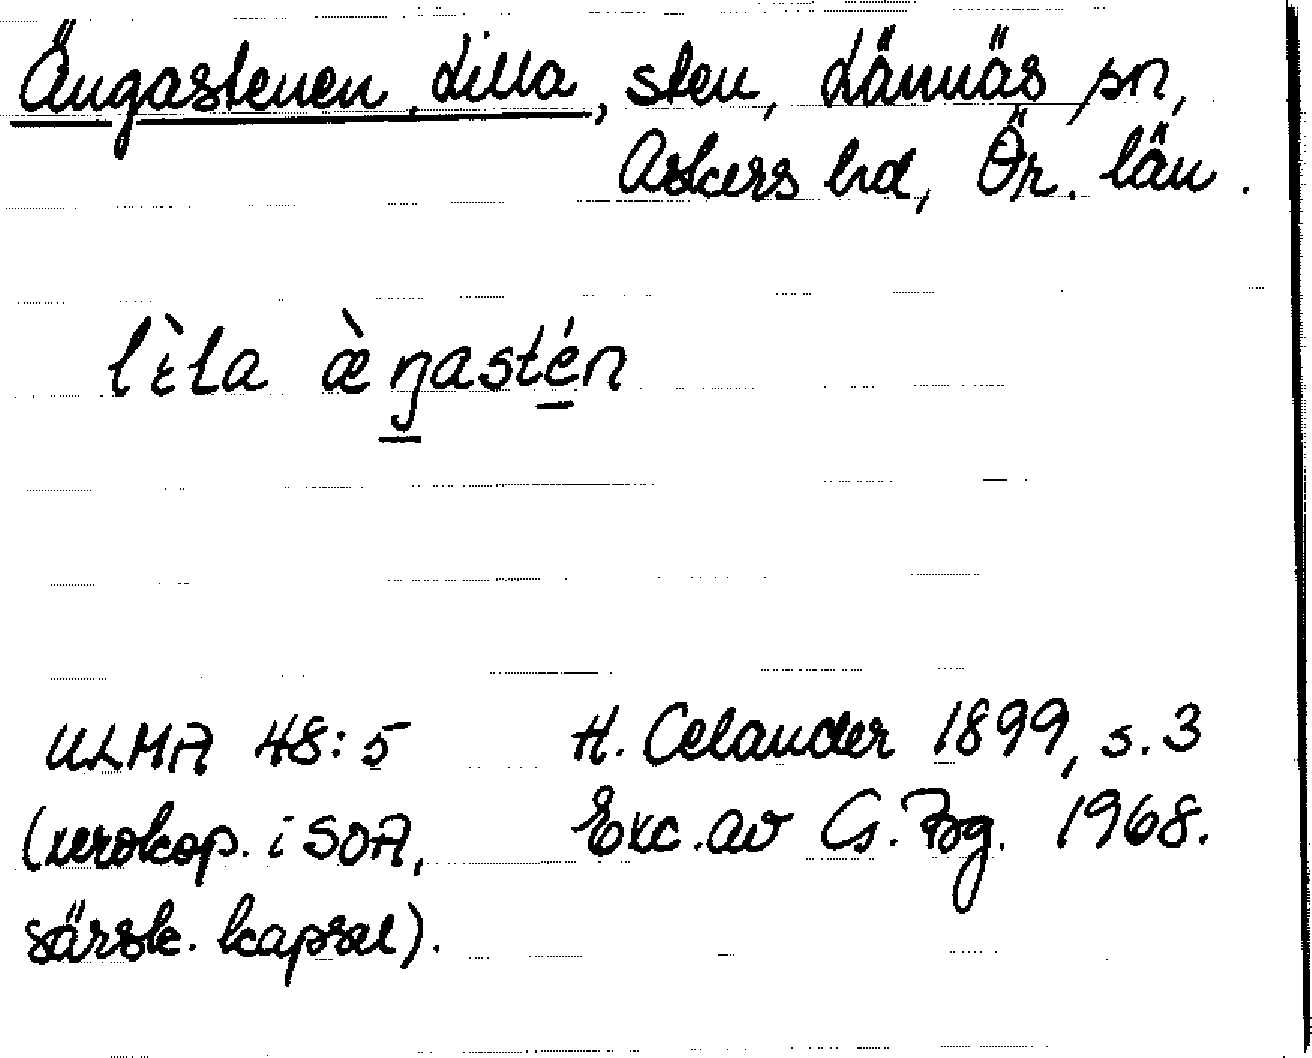 Ängastenen, Lilla, sten, Lännäs sn,
Askers hd, Ör. län.
lìla æ̀ŋastén
ULMA 48:5 H. Celander 1899, s. 3
(xerokop. i SOA, Exc. av G. Bg. 1968.
särsk. kapsel).